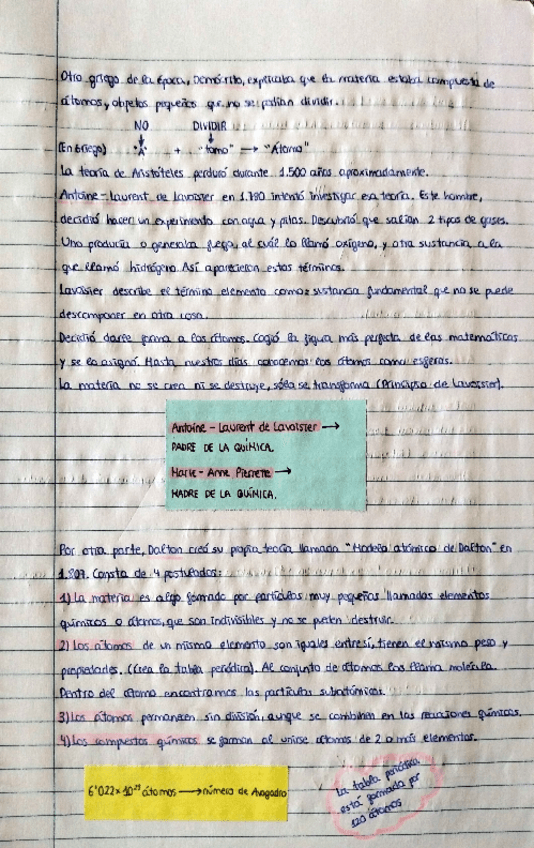 Otro griego de la época, Demócrito, explicaba que la materia estaba compuesta de
átomos, objetos pequeños que no se podían dividir.
NO DIVIDIR
(En griego) "A" + "tomo" → "Átomo"
La teoría de Aristóteles perduró durante 1.500 años aproximadamente.
Antoine-Laurent de Lavoisier en 1.780 intentó investigar esa teoría. Este hombre,
decidió hacer un experimento con agua y pilas. Descubrió que salían 2 tipos de gases.
Uno producía o generaba fuego, al cuál lo llamó oxígeno, y otra sustancia a la
que llamó hidrógeno. Así aparecieron estos términos.
Lavoisier describe el término elemento como: sustancia fundamental que no se puede
descomponer en otra cosa.
Decidió darle forma a los átomos. Cogió la figura más perfecta de las matemáticas
y se la asignó. Hasta nuestros días conocemos los átomos como esferas.
La materia no se crea ni se destruye, sólo se transforma (Principio de Lavoisier).
Antoine - Laurent de Lavoisier →
PADRE DE LA QUÍMICA.
Marie - Anne Pierrete →
MADRE DE LA QUÍMICA.
Por otra parte, Dalton creó su propia teoría llamada "Modelo atómico de Dalton" en
1.807. Consta de 4 postulados:
1) La materia es algo formado por partículas muy pequeñas llamadas elementos
químicos o átomos, que son indivisibles y no se pueden destruir.
2) Los átomos de un mismo elemento son iguales entre sí, tienen el mismo peso y
propiedades. (Crea la tabla periódica). Al conjunto de átomos los llama molécula.
Dentro del átomo encontramos las partículas subatómicas.
3) Los átomos permanecen sin división, aunque se combinen en las reacciones químicas.
4) Los compuestos químicos se forman al unirse átomos de 2 o más elementos.
6'022 x 10²³ átomos → número de Avogadro
La tabla periódica
está formada por
120 átomos